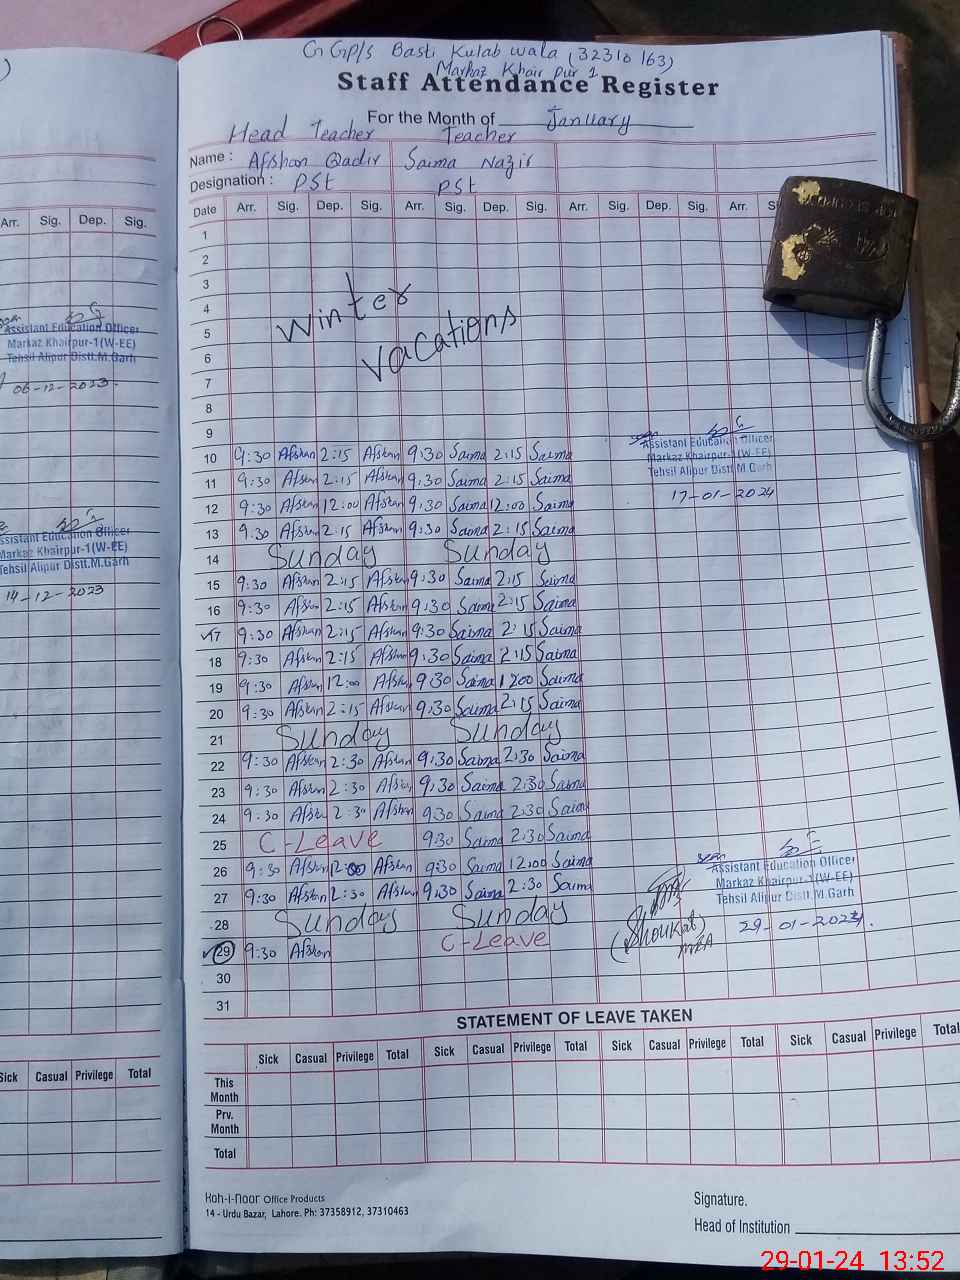 G GP/s Basti Kulab wala (32310163)
Markaz Khair pur 1
Staff Attendance Register
For the Month of January
Head Teacher Teacher
Name : Afshan Qadir Saima Nazir
Designation : PST PST
Arr. Sig. Dep. Sig.
Date Arr. Sig. Dep. Sig. Arr. Sig. Dep. Sig. Arr. Sig. Dep. Sig. Arr.
1
2
3
4
5
6
7
8
9
Winter
Vacations
10 9:30 Afshan 2:15 Afshan 9:30 Saima 2:15 Saima
11 9:30 Afshan 2:15 Afshan 9:30 Saima 2:15 Saima
12 9:30 Afshan 12:00 Afshan 9:30 Saima 12:00 Saima
13 9:30 Afshan 2:15 Afshan 9:30 Saima 2:15 Saima
14 Sunday Sunday
15 9:30 Afshan 2:15 Afshan 9:30 Saima 2:15 Saima
16 9:30 Afshan 2:15 Afshan 9:30 Saima 2:15 Saima
17 9:30 Afshan 2:15 Afshan 9:30 Saima 2:15 Saima
18 9:30 Afshan 2:15 Afshan 9:30 Saima 2:15 Saima
19 9:30 Afshan 12:00 Afshan 9:30 Saima 1200 Saima
20 9:30 Afshan 2:15 Afshan 9:30 Saima 2:15 Saima
21 Sunday Sunday
22 9:30 Afshan 2:30 Afshan 9:30 Saima 2:30 Saima
23 9:30 Afshan 2:30 Afshan 9:30 Saima 2:30 Saima
24 9:30 Afshan 2:30 Afshan 9:30 Saima 2:30 Saima
25 C-Leave 9:30 Saima 2:30 Saima
26 9:30 Afshan 12:00 Afshan 9:30 Saima 12:00 Saima
27 9:30 Afshan 2:30 Afshan 9:30 Saima 2:30 Saima
28 Sunday Sunday
29 9:30 Afshan C-Leave
30
31
Assistant Education Officer
Markaz Khairpur-1(W-EE)
Tehsil Alipur Distt.M.Garh
17-01-2024
Assistant Education Officer
Markaz Khairpur-1(W-EE)
Tehsil Alipur Distt.M.Garh
29-01-2024.
(Shoukat)
MEA
Assistant Education Officer
Markaz Khairpur-1(W-EE)
Tehsil Alipur Distt.M.Garh
06-12-2023.
Assistant Education Officer
Markaz Khairpur-1(W-EE)
Tehsil Alipur Distt.M.Garh
14-12-2023
STATEMENT OF LEAVE TAKEN
Sick Casual Privilege Total
Sick Casual Privilege Total Sick Casual Privilege Total Sick Casual Privilege Total Sick Casual Privilege Total
This
Month
Prv.
Month
Total
Koh-i-Noor Office Products
14 - Urdu Bazar, Lahore. Ph: 37358912, 37310463
Signature.
Head of Institution
29-01-24 13:52